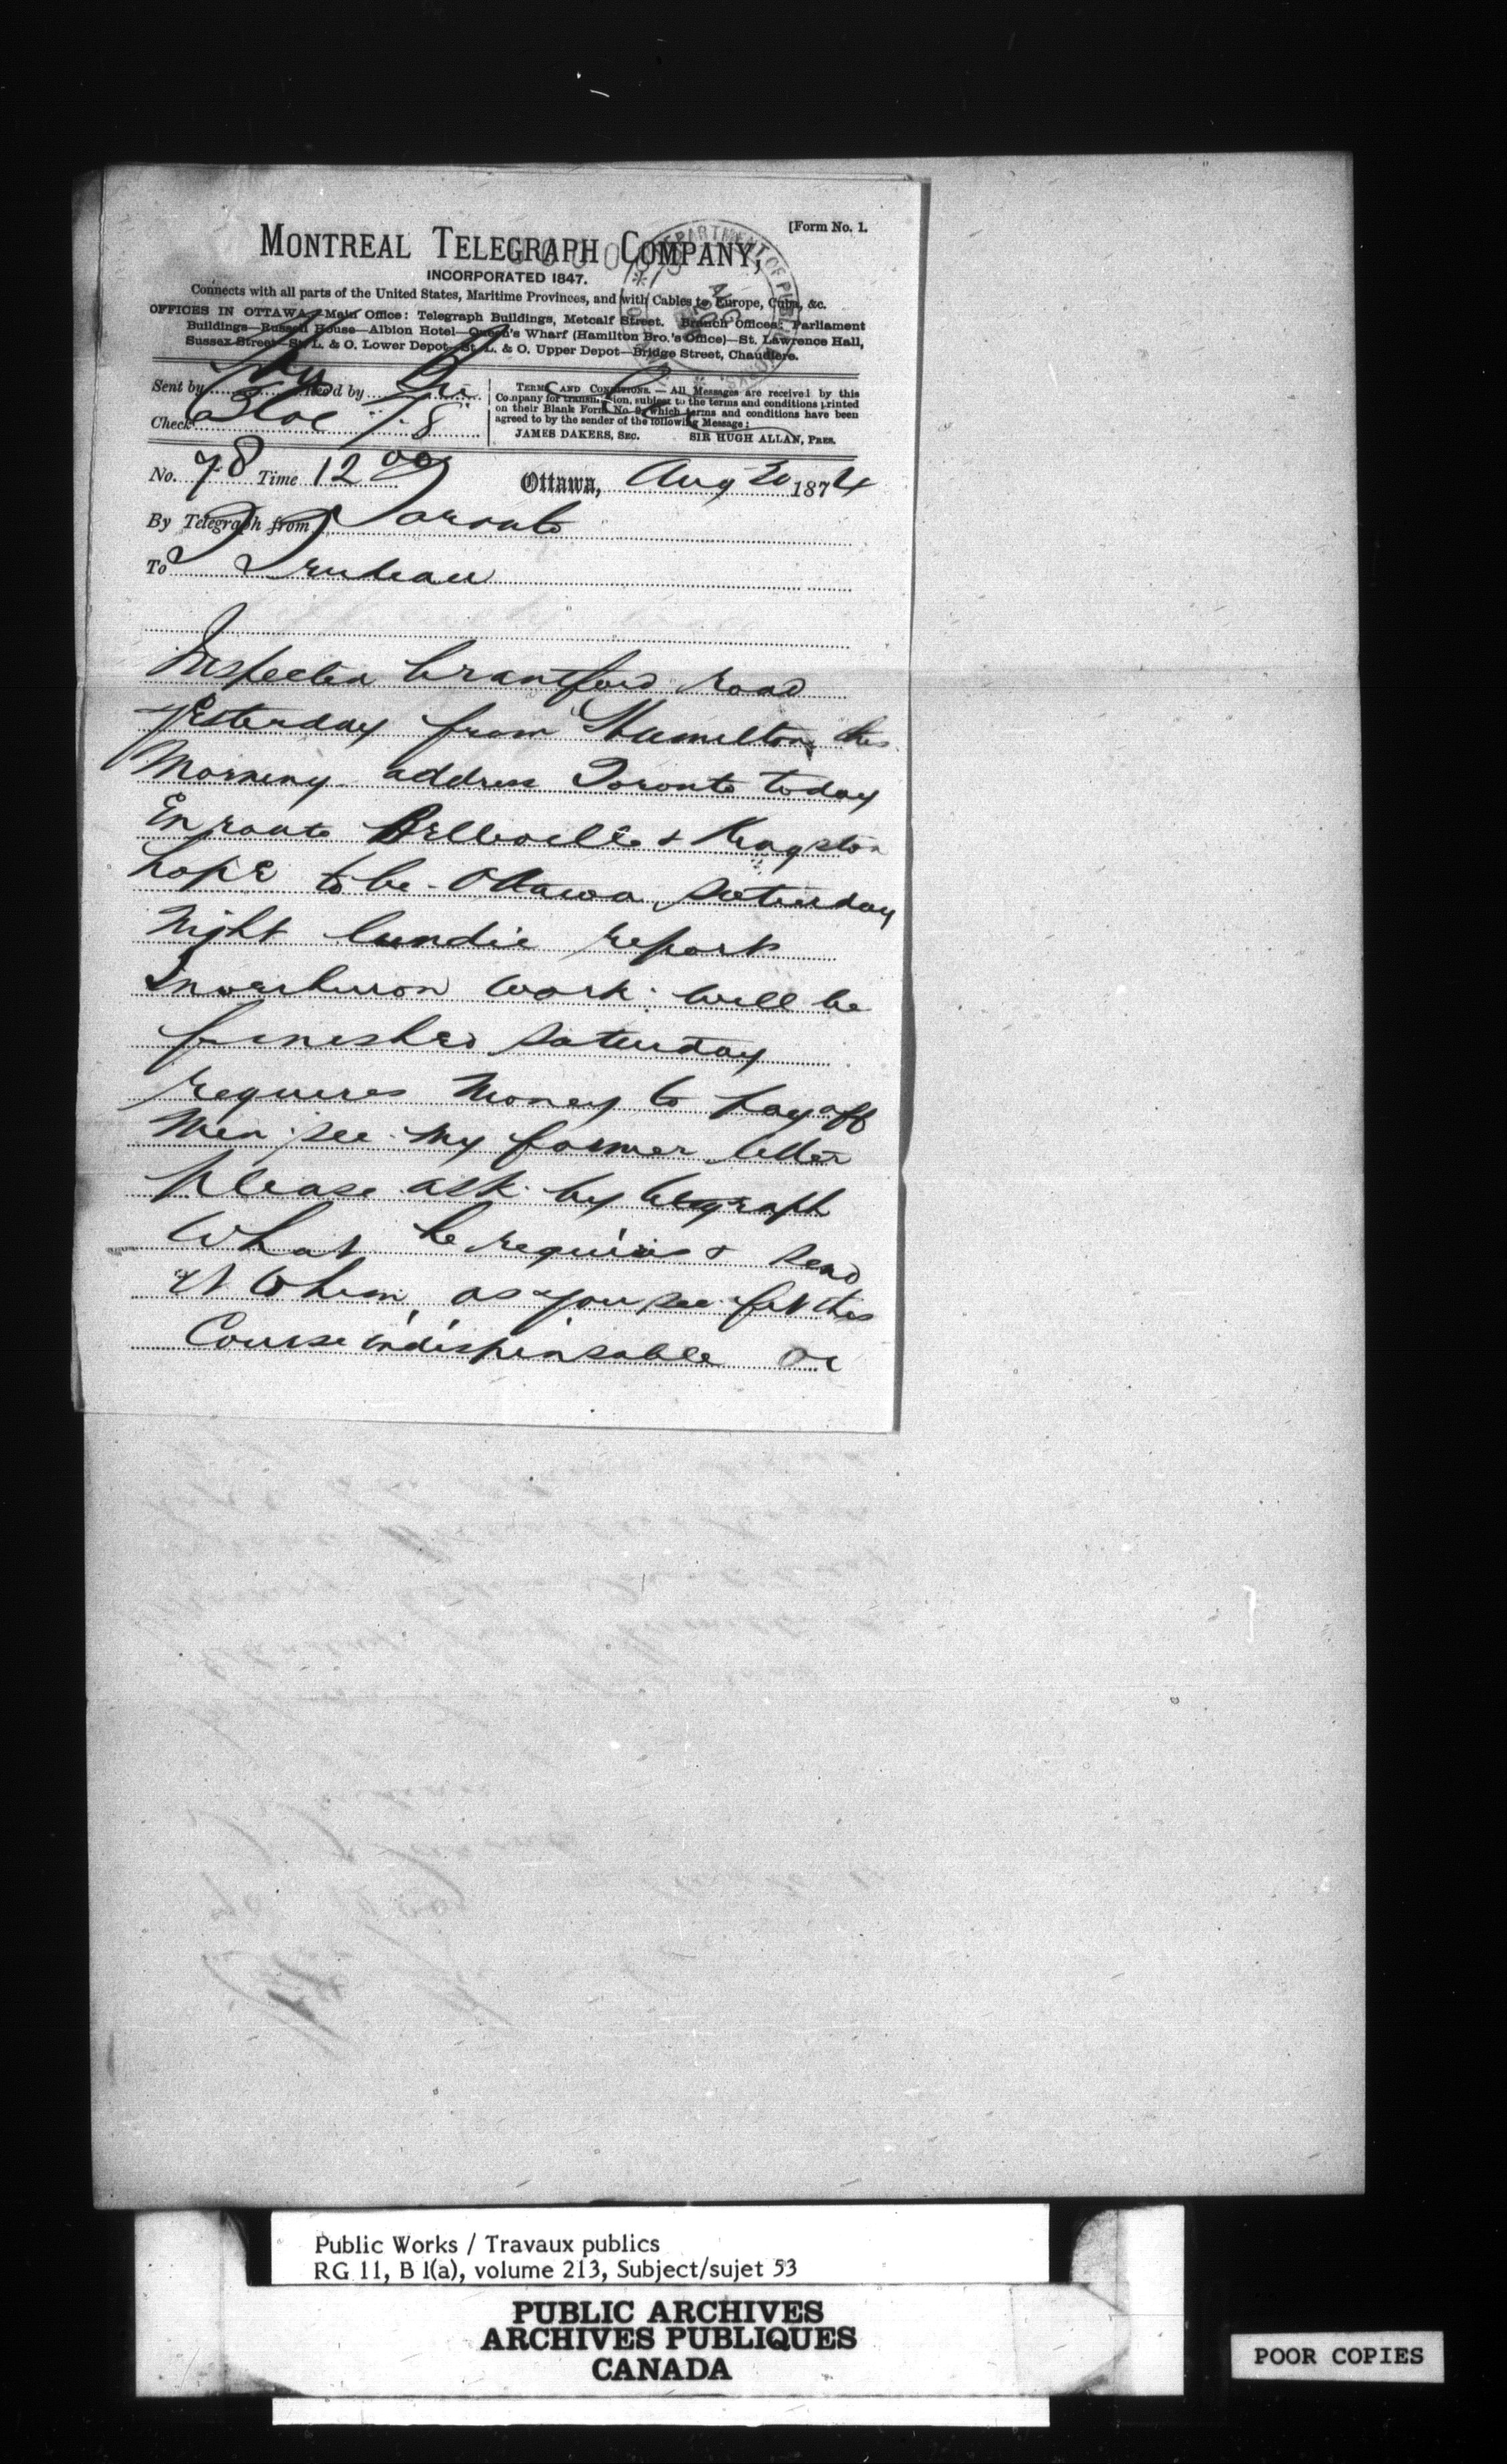 [Form No. 1.
MONTREAL TELEGRAPH COMPANY,
INCORPORATED 1847.
Connects with all parts of the United States, Maritime Provinces, and with Cables to Europe, Cuba, &c.
OFFICES IN OTTAWA—Main Office: Telegraph Buildings, Metcalf Street. Branch Offices: Parliament
Buildings—Russell House—Albion Hotel—Queen's Wharf (Hamilton Bro.'s Office)—St. Lawrence Hall,
Sussex Street—St. L. & O. Lower Depot—St. L. & O. Upper Depot—Bridge Street, Chaudiere.
DEPARTMENT OF PUBLIC WORKS
Sent by Rec'd by
Check 78
TERMS AND CONDITIONS.—All Messages are received by this
Company for transmission, subject to the terms and conditions printed
on their Blank Form No. 2, which terms and conditions have been
agreed to by the sender of the following Message:
JAMES DAKERS, SEC. SIR HUGH ALLAN, PRES.
No. 78 Time 12 00 Ottawa, Aug 20 1874
By Telegraph from Toronto
To Trudeau
Inspected Brantford road
yesterday from Hamilton this
Morning address Toronto today
En route Belleville & Kingston
hope to be Ottawa Saturday
Night Lundie reports
Inverhuron work will be
finished Saturday
requires money to pay off
Men see my former letter
please ask by telegraph
What he requires & send
it to him as you see fit this
Course indispensable or
Public Works / Travaux publics
RG 11, B 1(a), volume 213, Subject/sujet 53
PUBLIC ARCHIVES
ARCHIVES PUBLIQUES
CANADA
POOR COPIES